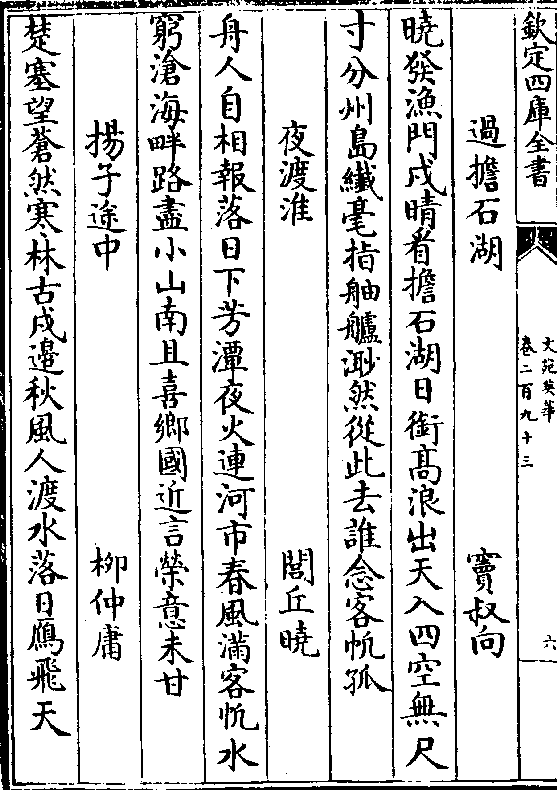 欽定四庫全書
文苑英華
卷二百九十三
六
過擔石湖 竇叔向
曉發漁門戍晴看擔石湖日銜髙浪出天入四空無尺
寸分州島纎毫指舳艫渺然從此去誰念客㠶孤
夜渡淮 閭丘曉
舟人自相報落日下芳潭夜火連河市春風滿客㠶水
窮滄海畔路盡小山南且喜鄉國近言榮意未甘
揚子途中 柳仲庸
楚塞望蒼然寒林古戍邉秋風人渡水落日鴈飛天